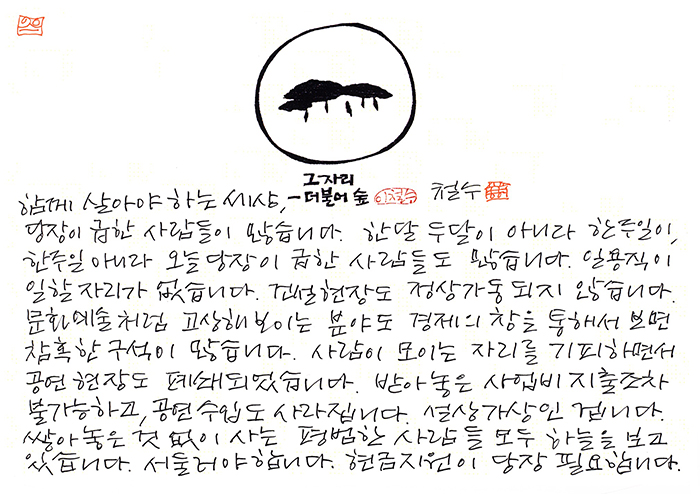 그 자리
-더불어 숲
철수
함께 살아야 하는 세상,
당장이 급한 사람들이 많습니다. 한달 두달이 아니라 한주일이,
한주일 아니라 오늘 당장이 급한 사람들도 많습니다. 일용직이
일할 자리가 없습니다. 건설현장도 정상가동 되지 않습니다.
문화예술처럼 고상해 보이는 분야도 경제의 창을 통해서 보면
참혹한 구석이 많습니다. 사람이 모이는 자리를 기피하면서
공연 현장도 폐쇄되었습니다. 받아놓은 사업비 지출조차
불가능하고, 공연수입도 사라집니다. 설상가상인 겁니다.
쌓아놓은 것 없이 사는 평범한 사람들 모두 하늘을 보고
있습니다. 서둘러야 합니다. 현금지원이 당장 필요합니다.